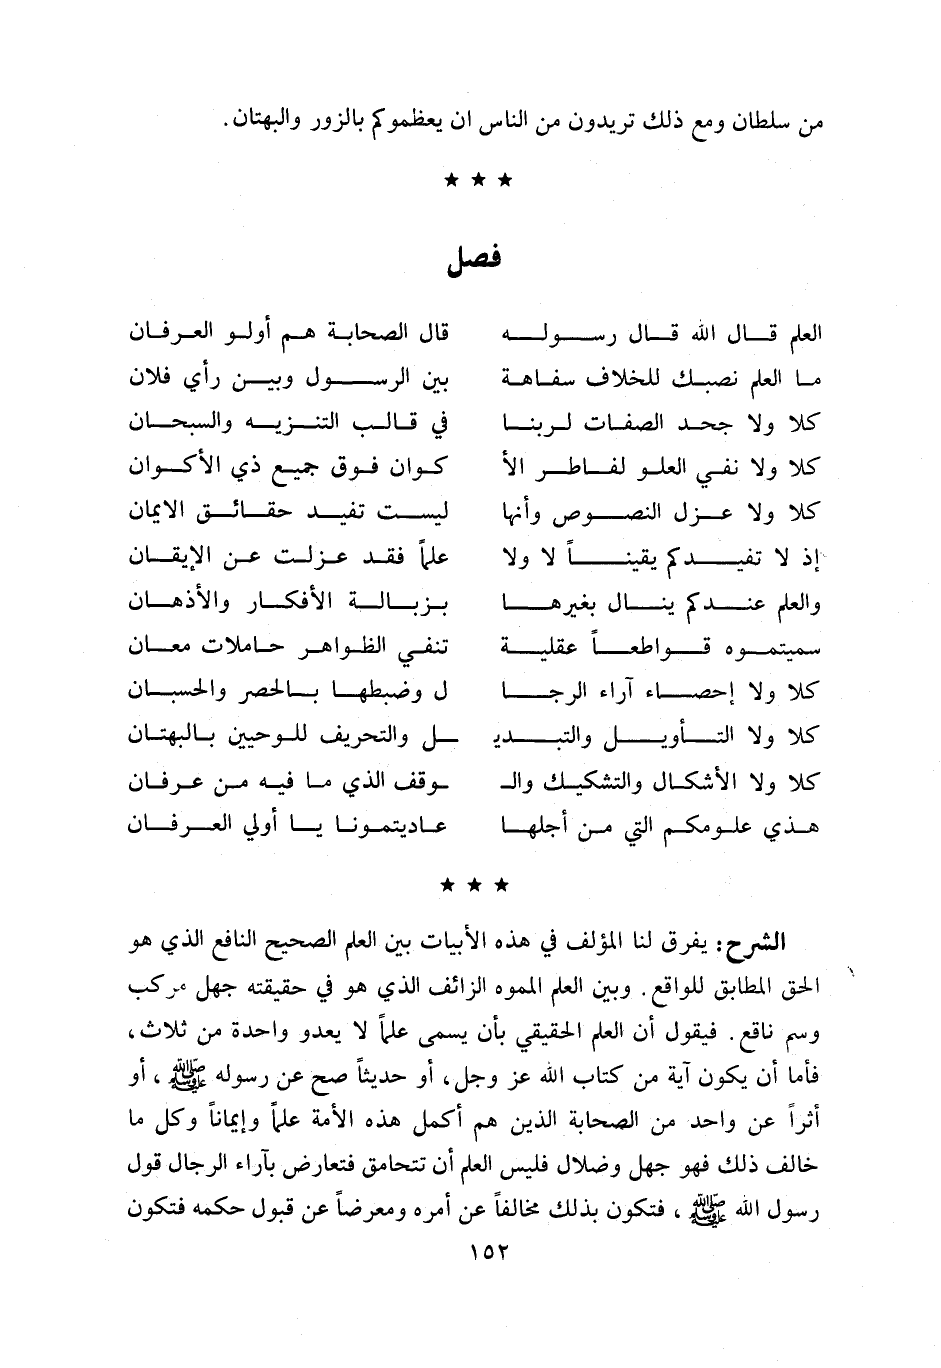 من سلطان ومع ذلك تريدون من الناس ان يعظموكم بالزور والبهتان.
★ ★ ★
فصل
العلم قال الله قال رسوله قال الصحابة هم أولو العرفان
ما العلم نصبك للخلاف سفاهة بين الرسول وبين رأي فلان
كلا ولا جحد الصفات لربنا في قالب التنزيه والسبحان
كلا ولا نفي العلو لفاطر الأ كوان فوق جميع ذي الأكوان
كلا ولا عزل النصوص وأنها ليست تفيد حقائق الايمان
إذ لا تفيدكم يقيناً لا ولا علماً فقد عزلت عن الإيقان
والعلم عندكم ينال بغيرها بزبالة الأفكار والأذهان
سميتموه قواطعاً عقلية تنفي الظواهر حاملات معان
كلا ولا إحصاء آراء الرجا ل وضبطها بالحصر والحسبان
كلا ولا التأويل والتبديـ ـل والتحريف للوحيين بالبهتان
كلا ولا الأشكال والتشكيك والـ ـوقف الذي ما فيه من عرفان
هذي علومكم التي من أجلها عاديتمونا يا أولي العرفان
★ ★ ★
الشرح: يفرق لنا المؤلف في هذه الأبيات بين العلم الصحيح النافع الذي هو
الحق المطابق للواقع. وبين العلم المموه الزائف الذي هو في حقيقته جهل مركب
وسم ناقع. فيقول أن العلم الحقيقي بأن يسمى علماً لا يعدو واحدة من ثلاث،
فأما أن يكون آية من كتاب الله عز وجل، أو حديثاً صح عن رسوله ﷺ، أو
أثراً عن واحد من الصحابة الذين هم أكمل هذه الأمة علماً وإيماناً وكل ما
خالف ذلك فهو جهل وضلال فليس العلم أن تتحامق فتعارض بآراء الرجال قول
رسول الله ﷺ، فتكون بذلك مخالفاً عن أمره ومعرضاً عن قبول حكمه فتكون
١٥٢